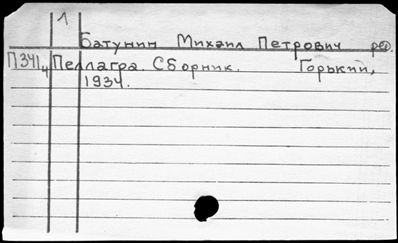 1
Батунин Михаил Петрович ред
П341₄ Пеллагра. Сборник. Горький,
1934.